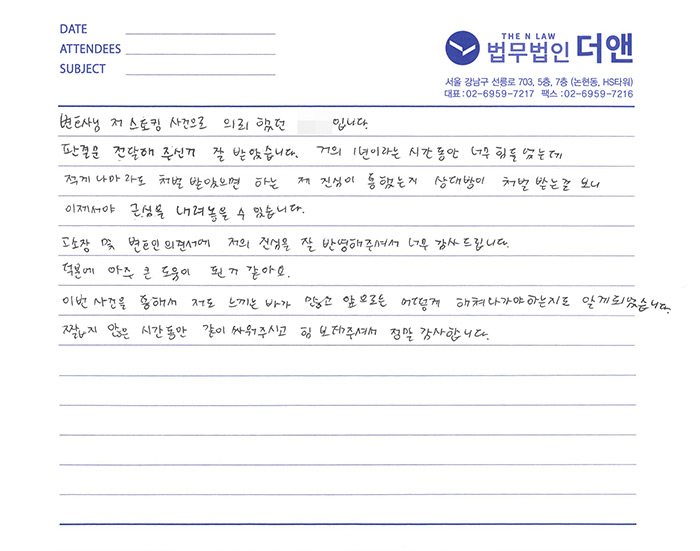 DATE
ATTENDEES
SUBJECT
THE N LAW
법무법인 더앤
서울 강남구 선릉로 703, 5층, 7층 (논현동, HS타워)
대표 : 02-6959-7217 팩스 : 02-6959-7216
변호사님 저 스토킹 사건으로 의뢰 했던 입니다.
판결문 전달해 주신거 잘 받았습니다. 거의 1년이라는 시간동안 너무 힘들었는데
적게 나마라도 처벌 받았으면 하는 제 진심이 통했는지 상대방이 처벌 받는걸 보니
이제서야 근심을 내려놓을 수 있습니다.
고소장 및 변호인의견서에 저의 진심을 잘 반영해주셔서 너무 감사드립니다.
덕분에 아주 큰 도움이 된거 같아요.
이번 사건을 통해서 저도 느끼는 바가 많고 앞으로는 어떻게 해쳐나가야하는지도 알게되었습니다.
짧지 않은 시간동안 같이 싸워주시고 힘 보태주셔서 정말 감사합니다.